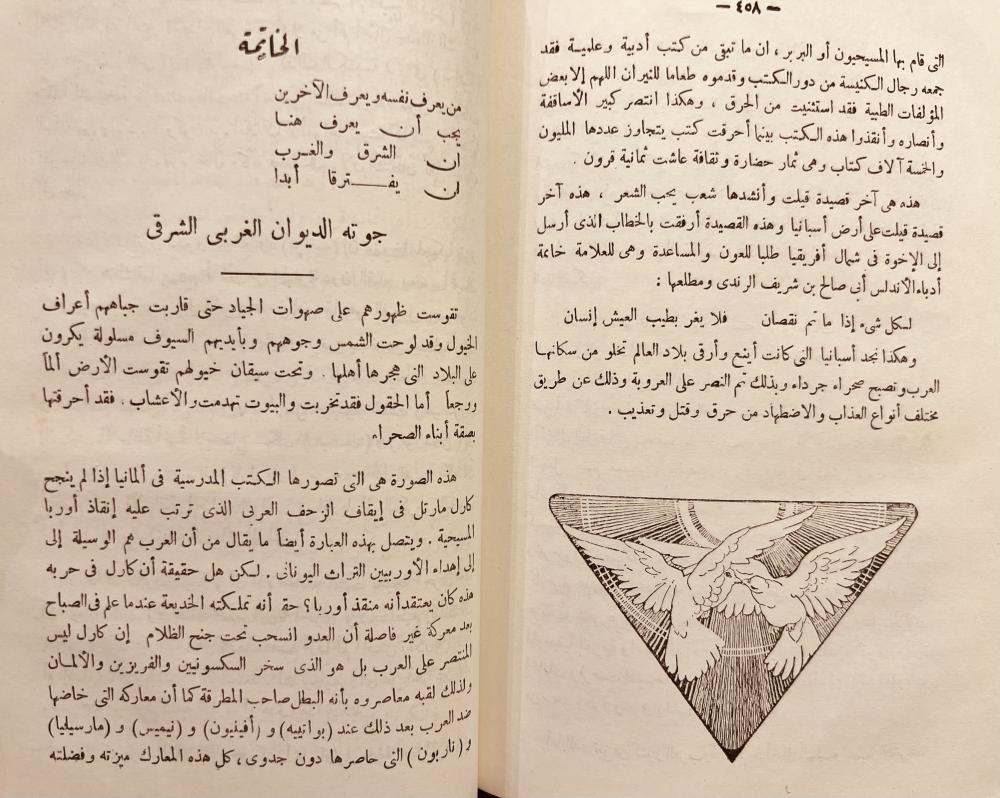 — ٤٥٨ —
التى قام بها المسيحيون أو البربر ، ان ما تبقى من كتب أدبية وعلمية فقد
جمعه رجال الكنيسة من دور الكتب وقدموه طعاما للنيران اللهم إلا بعض
المؤلفات الطبية فقد استثنيت من الحرق ، وهكذا انتصر كبير الأساقفة
وأنصاره وأنقذوا هذه الكتب بينما أحرقت كتب يتجاوز عددها المليون
والخمسة آلاف كتاب وهى ثمار حضارة وثقافة عاشت ثمانية قرون .
هذه هى آخر قصيدة قيلت وأنشدها شعب يحب الشعر ، هذه آخر
قصيدة قيلت على أرض أسبانيا وهذه القصيدة أرفقت بالخطاب الذى أرسل
إلى الإخوة فى شمال أفريقيا طلبا للعون والمساعدة وهى للعلامة خاتمة
أدباء الأندلس أبي صالح بن شريف الرندى ومطلعها :
لكل شىء إذا ما تم نقصان فلا يغر بطيب العيش إنسان
وهكذا نجد أسبانيا التى كانت أينع وأرقى بلاد العالم تخلو من سكانها
العرب وتصبح صحراء جرداء وبذلك تم النصر على العروبة وذلك عن طريق
مختلف أنواع العذاب والاضطهاد من حرق وقتل وتعذيب .
الخاتمة
من يعرف نفسه ويعرف الآخرين
يجب أن يعرف هنا
ان الشرق والغرب
لن يفترقا أبدا
جوته الديوان الغربى الشرقى
تقوست ظهورهم على صهوات الجياد حتى قاربت جباههم أعراف
الخيول وقد لوحت الشمس وجوههم وبأيديهم السيوف مسلولة يكرون
على البلاد التى هجرها أهلها . وتحت سيقان خيولهم تقوست الأرض ألماً
ورجعاً أما الحقول فقد تخربت والبيوت تهدمت والأعشاب . فقد أحرقتها
بصقة أبناء الصحراء
هذه الصورة هى التى تصورها الكتب المدرسية فى ألمانيا إذا لم ينجح
كارل مارتل فى إيقاف الزحف العربى الذى ترتب عليه إنقاذ أوربا
المسيحية . ويتصل بهذه العبارة أيضاً ما يقال من أن العرب هم الوسيلة إلى
إلى إهداء الأوربيين التراث اليونانى . لكن هل حقيقة أن كارل فى حربه
هذه كان يعتقد أنه منقذ أوربا ؟ حقـ أنه تملكته الخديعة عندما علم فى الصباح
بعد معركة غير فاصلة أن العدو انسحب تحت جنح الظلام إن كارل ليس
المنتصر على العرب بل هو الذى سخر السكسونيين والفريزين والألمان
ولذلك لقبه معاصروه بأنه البطل صاحب المطرقة كما أن معاركه التى خاضها
ضد العرب بعد ذلك عند ( بواتييه ) و ( أفينيون ) و ( نيميس ) و ( مارسيليا )
و ( ناربون ) التى حاصرها دون جدوى ، كل هذه المعارك ميزته وفضلته